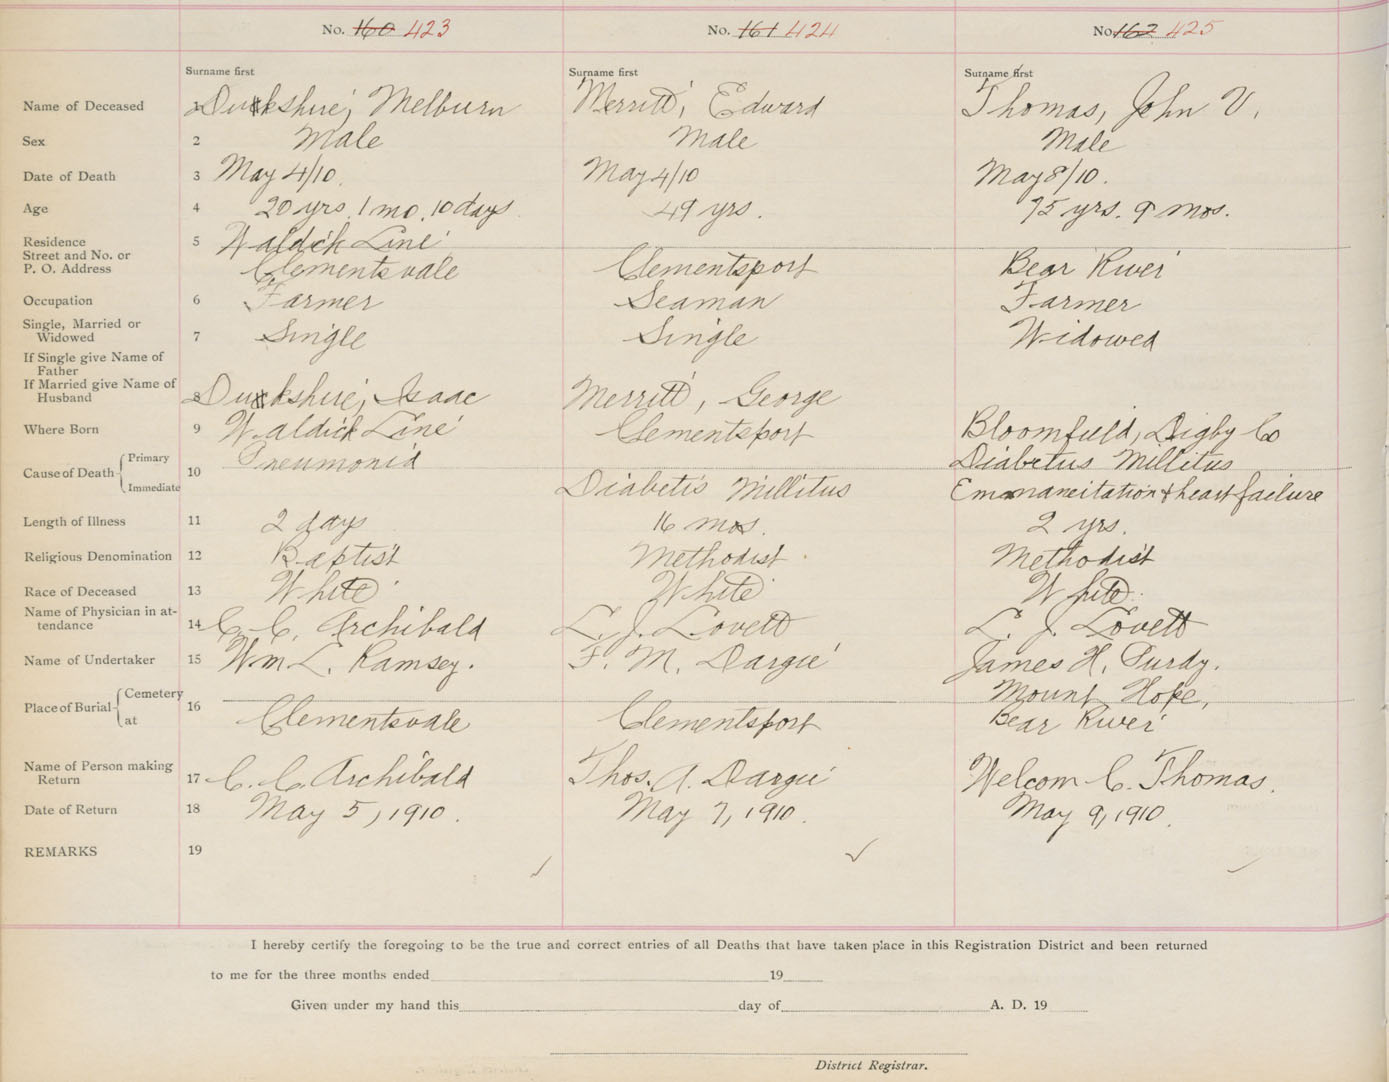 No. 160 423 No. 161 424 No. 162 425
Surname first Surname first Surname first
Name of Deceased 1 Durkshire, Melburn Merritt, Edward Thomas, John V.
Sex 2 Male Male Male
Date of Death 3 May 4/10. May 4/10 May 8/10.
Age 4 20 yrs. 1 mo. 10 days 49 yrs. 75 yrs. 9 mos.
Residence 5 Waldick Line
Street and No. or
P. O. Address Clementsvale Clementsport Bear River
Occupation 6 Farmer Seaman Farmer
Single, Married or
Widowed 7 Single Single Widowed
If Single give Name of
Father
If Married give Name of
Husband 8 Durkshire, Isaac Merritt, George
Where Born 9 Waldick Line Clementsport Bloomfield, Digby Co
Cause of Death Primary 10 Pneumonia Diabetus Millitus
Immediate Diabetis Millitus & heart failure
Length of Illness 11 2 days 16 mos. 2 yrs.
Religious Denomination 12 Baptist Methodist Methodist
Race of Deceased 13 White White White
Name of Physician in at-
tendance 14 C. C. Archibald L. J. Lovett L. J. Lovett
Name of Undertaker 15 Wm L. Ramsey. F. M. Dargie James H. Purdy.
Place of Burial Cemetery 16 Mount Hope,
at Clementsvale Clementsport Bear River
Name of Person making
Return 17 C. C. Archibald Thos. A. Dargie Welcom C. Thomas.
Date of Return 18 May 5, 1910. May 7, 1910. May 9, 1910.
REMARKS 19
I hereby certify the foregoing to be the true and correct entries of all Deaths that have taken place in this Registration District and been returned
to me for the three months ended 19
Given under my hand this day of A. D. 19
District Registrar.